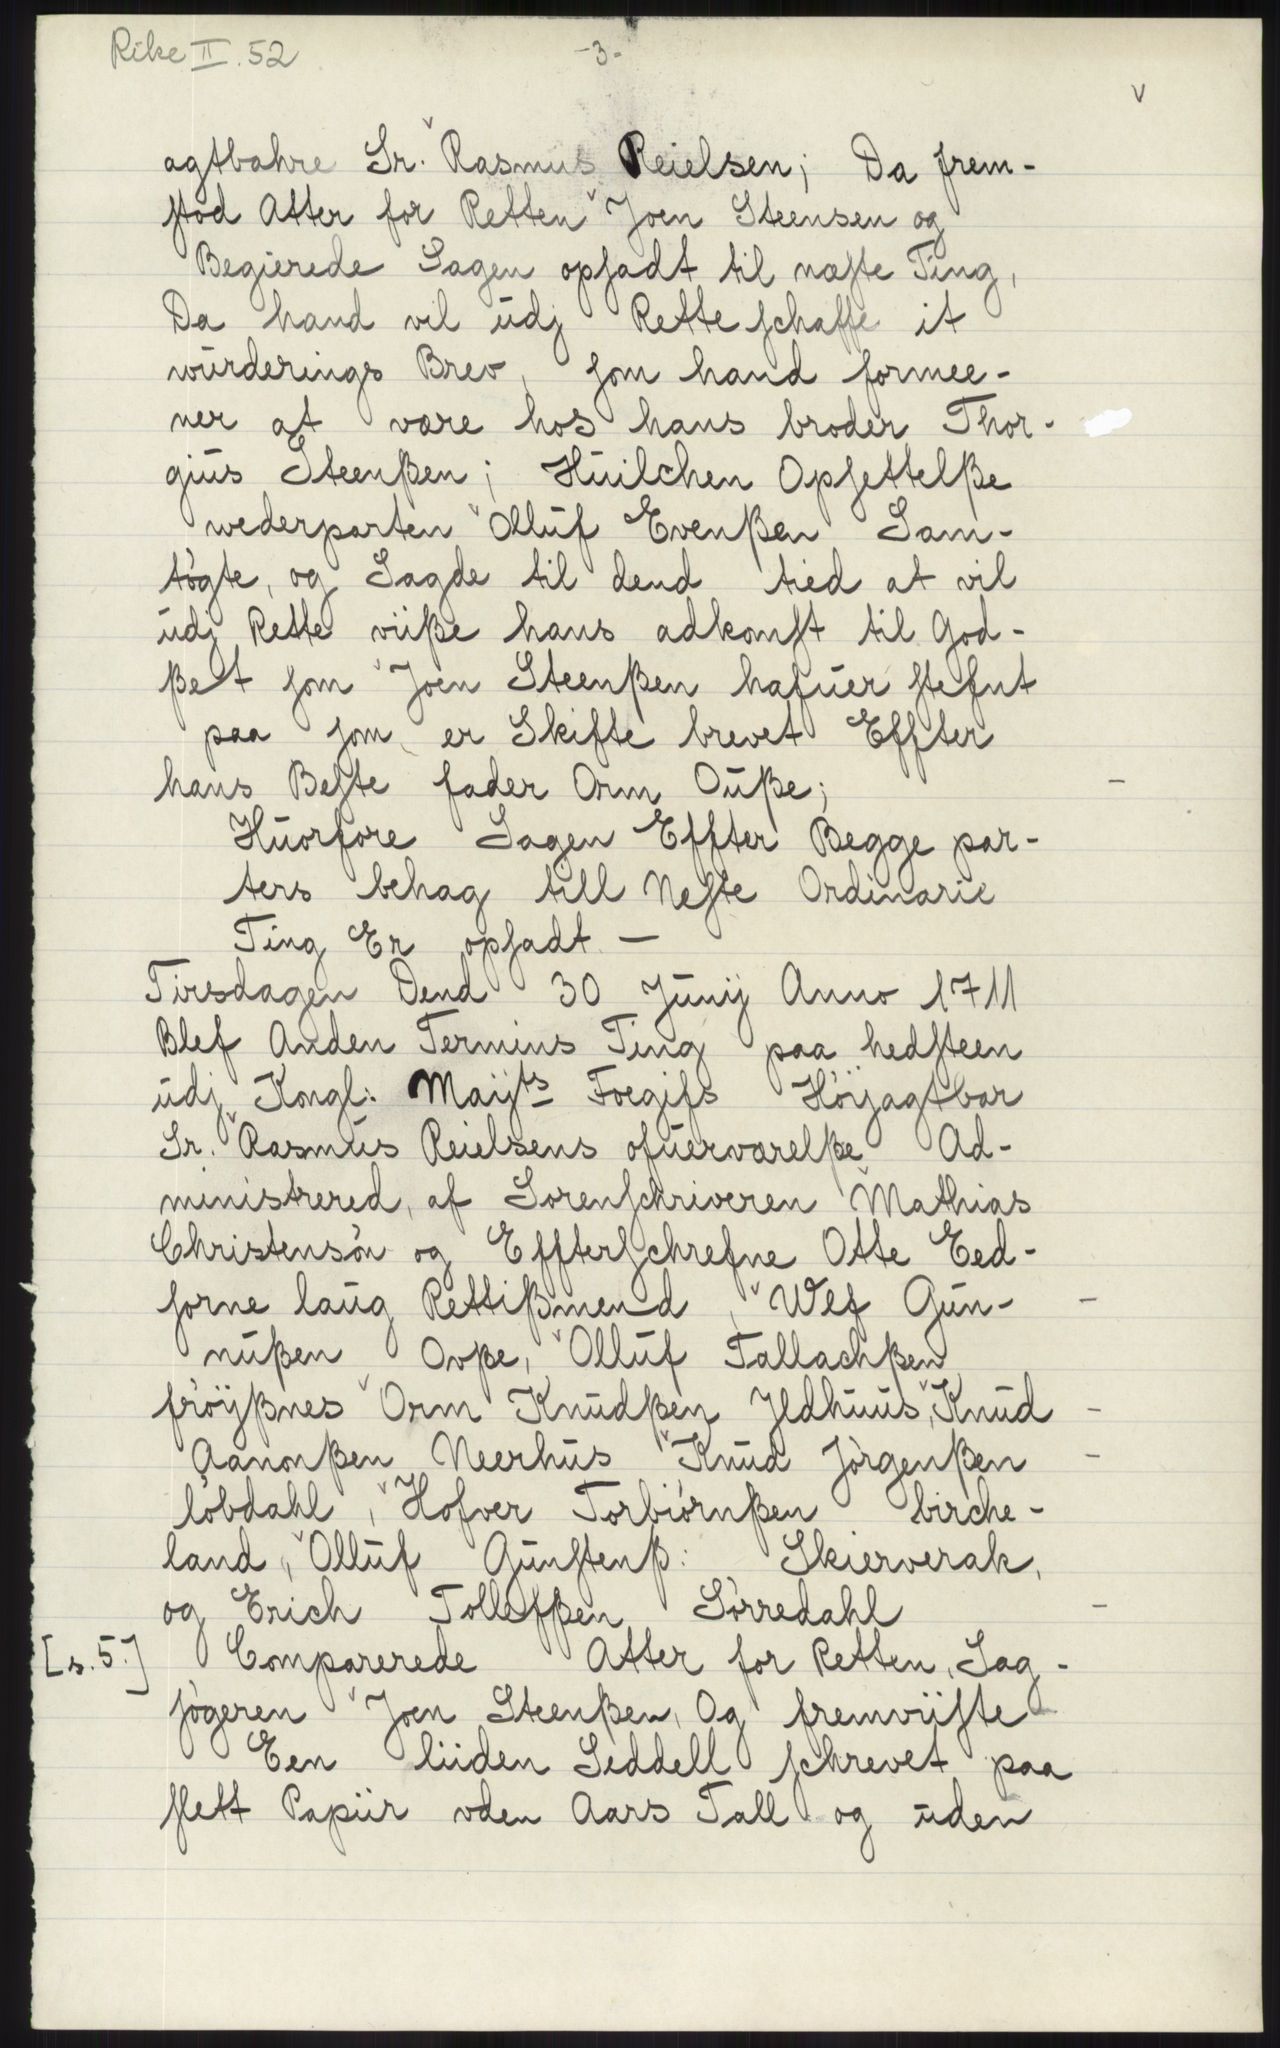 Rike II. 52
-3-
v
agtbahre Sr. Rasmus Reielsen; Da frem-
stod Atter for Retten Joen Steensen og
Begierede Sagen opsadt til næste Ting,
Da hand vil udj Rette schaffe it
wurderings Brev, som hand formee-
ner at være hos hans broder Thor-
gius Steenßen; Huilchen Opsettelße
wederparten Olluf Evenßen Sam-
tøgte, og Sagde til dend tied at vil
udj Rette viiße hans adkomst til God-
ßet som Joen Steenßen hafuer stefnt
paa som er Skifte brevet Effter
hans Beste fader Orm Oußе;
Huorfore Sagen Effter Begge par-
ters behag till Neste Ordinarie
Ting Er opsadt —
Tirsdagen Dend 30 Junij Anno 1711
Blef Anden Termins Ting paa hedsteen
udj Kongl: Maijts Foegifs Høyagtbar
Sr. Rasmus Reielsens ofuerværelße Ad-
ministrered, af Sorenschriveren Mathias
Christensøn og Effterschrefne Otte Eed-
sorne laug Rettißmend, Wlf Gun-
nußen Ovße, Olluf Tallachßen
frøÿßnes Orm Knudßen Jldhuus, Knud
Aanonßen Neerhus Knud Jørgenßen
løbdahl, Hofver Torbiørnßen birche-
land, Olluf Gunstenß: Skierverak,
og Erich Tollefßen Sørredahl
[s. 5.] Comparerede Atter for Retten, Sag-
søgeren Joen Steenßen, Og fremviiste
Een liiden Seddell schrevet paa
slett Papiir vden Aars Tall og uden